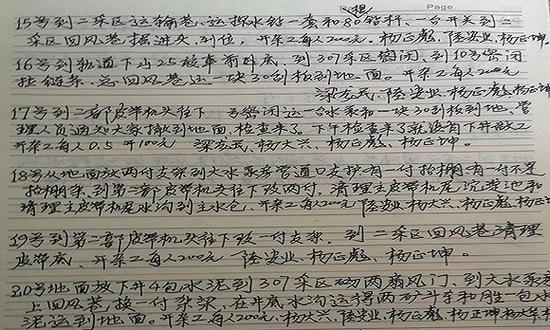 Page.
15号到二采区运输巷,运探水钻一套和80钻杆,一台开关到二
采区回风巷掘进头,到位,开杂工每人200元。杨正彪、陆安业、杨正坤
16号到轨道下山25绞车前卧底,到307采区密闭,到10号密闭
挂链条,总回风巷运一块30刮板到地面。开杂工每人200元
梁友云、陆安业、杨正彪、杨正坤
17号到二部皮带机头往下 号密闭运一台水泵和一块30刮板到地,管
理人员通知大家撤到地面,检查来了。下午检查来了就没有下井做工
开杂工每人0.5开100元 梁友云、杨大兴、杨正彪、杨正坤。
18号从地面放两付支架到大水泵房管道口支护有一付抬棚,有一付不是
抬棚来,到第二部皮带机头往下改两付,清理主皮带机尾沉淀池和
清理主皮带机尾水沟到主水仓,开杂工每人200元 陆安业、杨大兴、杨正彪、杨正
19号到第二部皮带机头往下改一付支架,到二采区回风巷清理
皮带底,开杂工每人200元 陆安业、杨正彪、杨正坤。
20号地面放下井4包水泥到307采区砌两扇风门,到大水泵房
上回风巷,换一付架梁,在井底水沟运得两矿斗车和胜一包水
泥运到地面。开杂工每人200元、杨大兴、陆安业、杨正彪、杨正坤